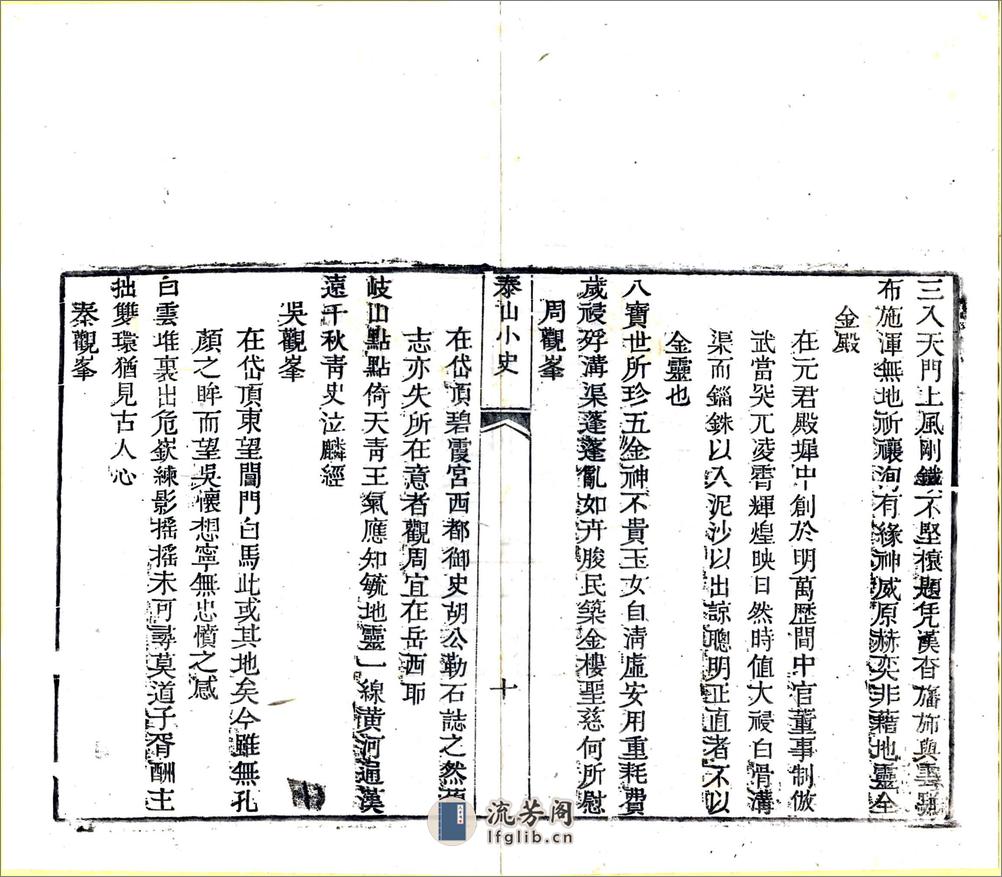 三入天門上風剛鐵不堅榱題凭漢杳旛斾與雲
布施渾無地祈禳洵有緣神威原赫奕非藉地靈全
金殿
在元君殿墀中創於明萬歷間中官董事制倣
武當突兀凌霄輝煌映日然時值大祲白骨溝
渠而錙銖以入泥沙以出諒聰明正直者不以
金靈也
八寶世所珍五金神不貴玉女自清虛安用重耗費
歲祲殍溝渠蓬蓬亂如卉朘民築金樓聖慈何所慰
周觀峯
泰山小史
十
在岱頂碧霞宮西都御史胡公勒石誌之然
志亦失所在意者觀周宜在岳西耶
岐山點點倚天青王氣應知毓地靈一線黃河通漢
遠千秋青史泣麟經
吳觀峯
在岱頂東望閶門白馬此或其地矣今雖無孔
顏之眸而望吳懷想寧無忠憤之感
白雲堆裏出危嶔練影搖搖未可尋莫道子胥酬主
拙雙環猶見古人心
秦觀峯
流芳阁
lfglib.cn